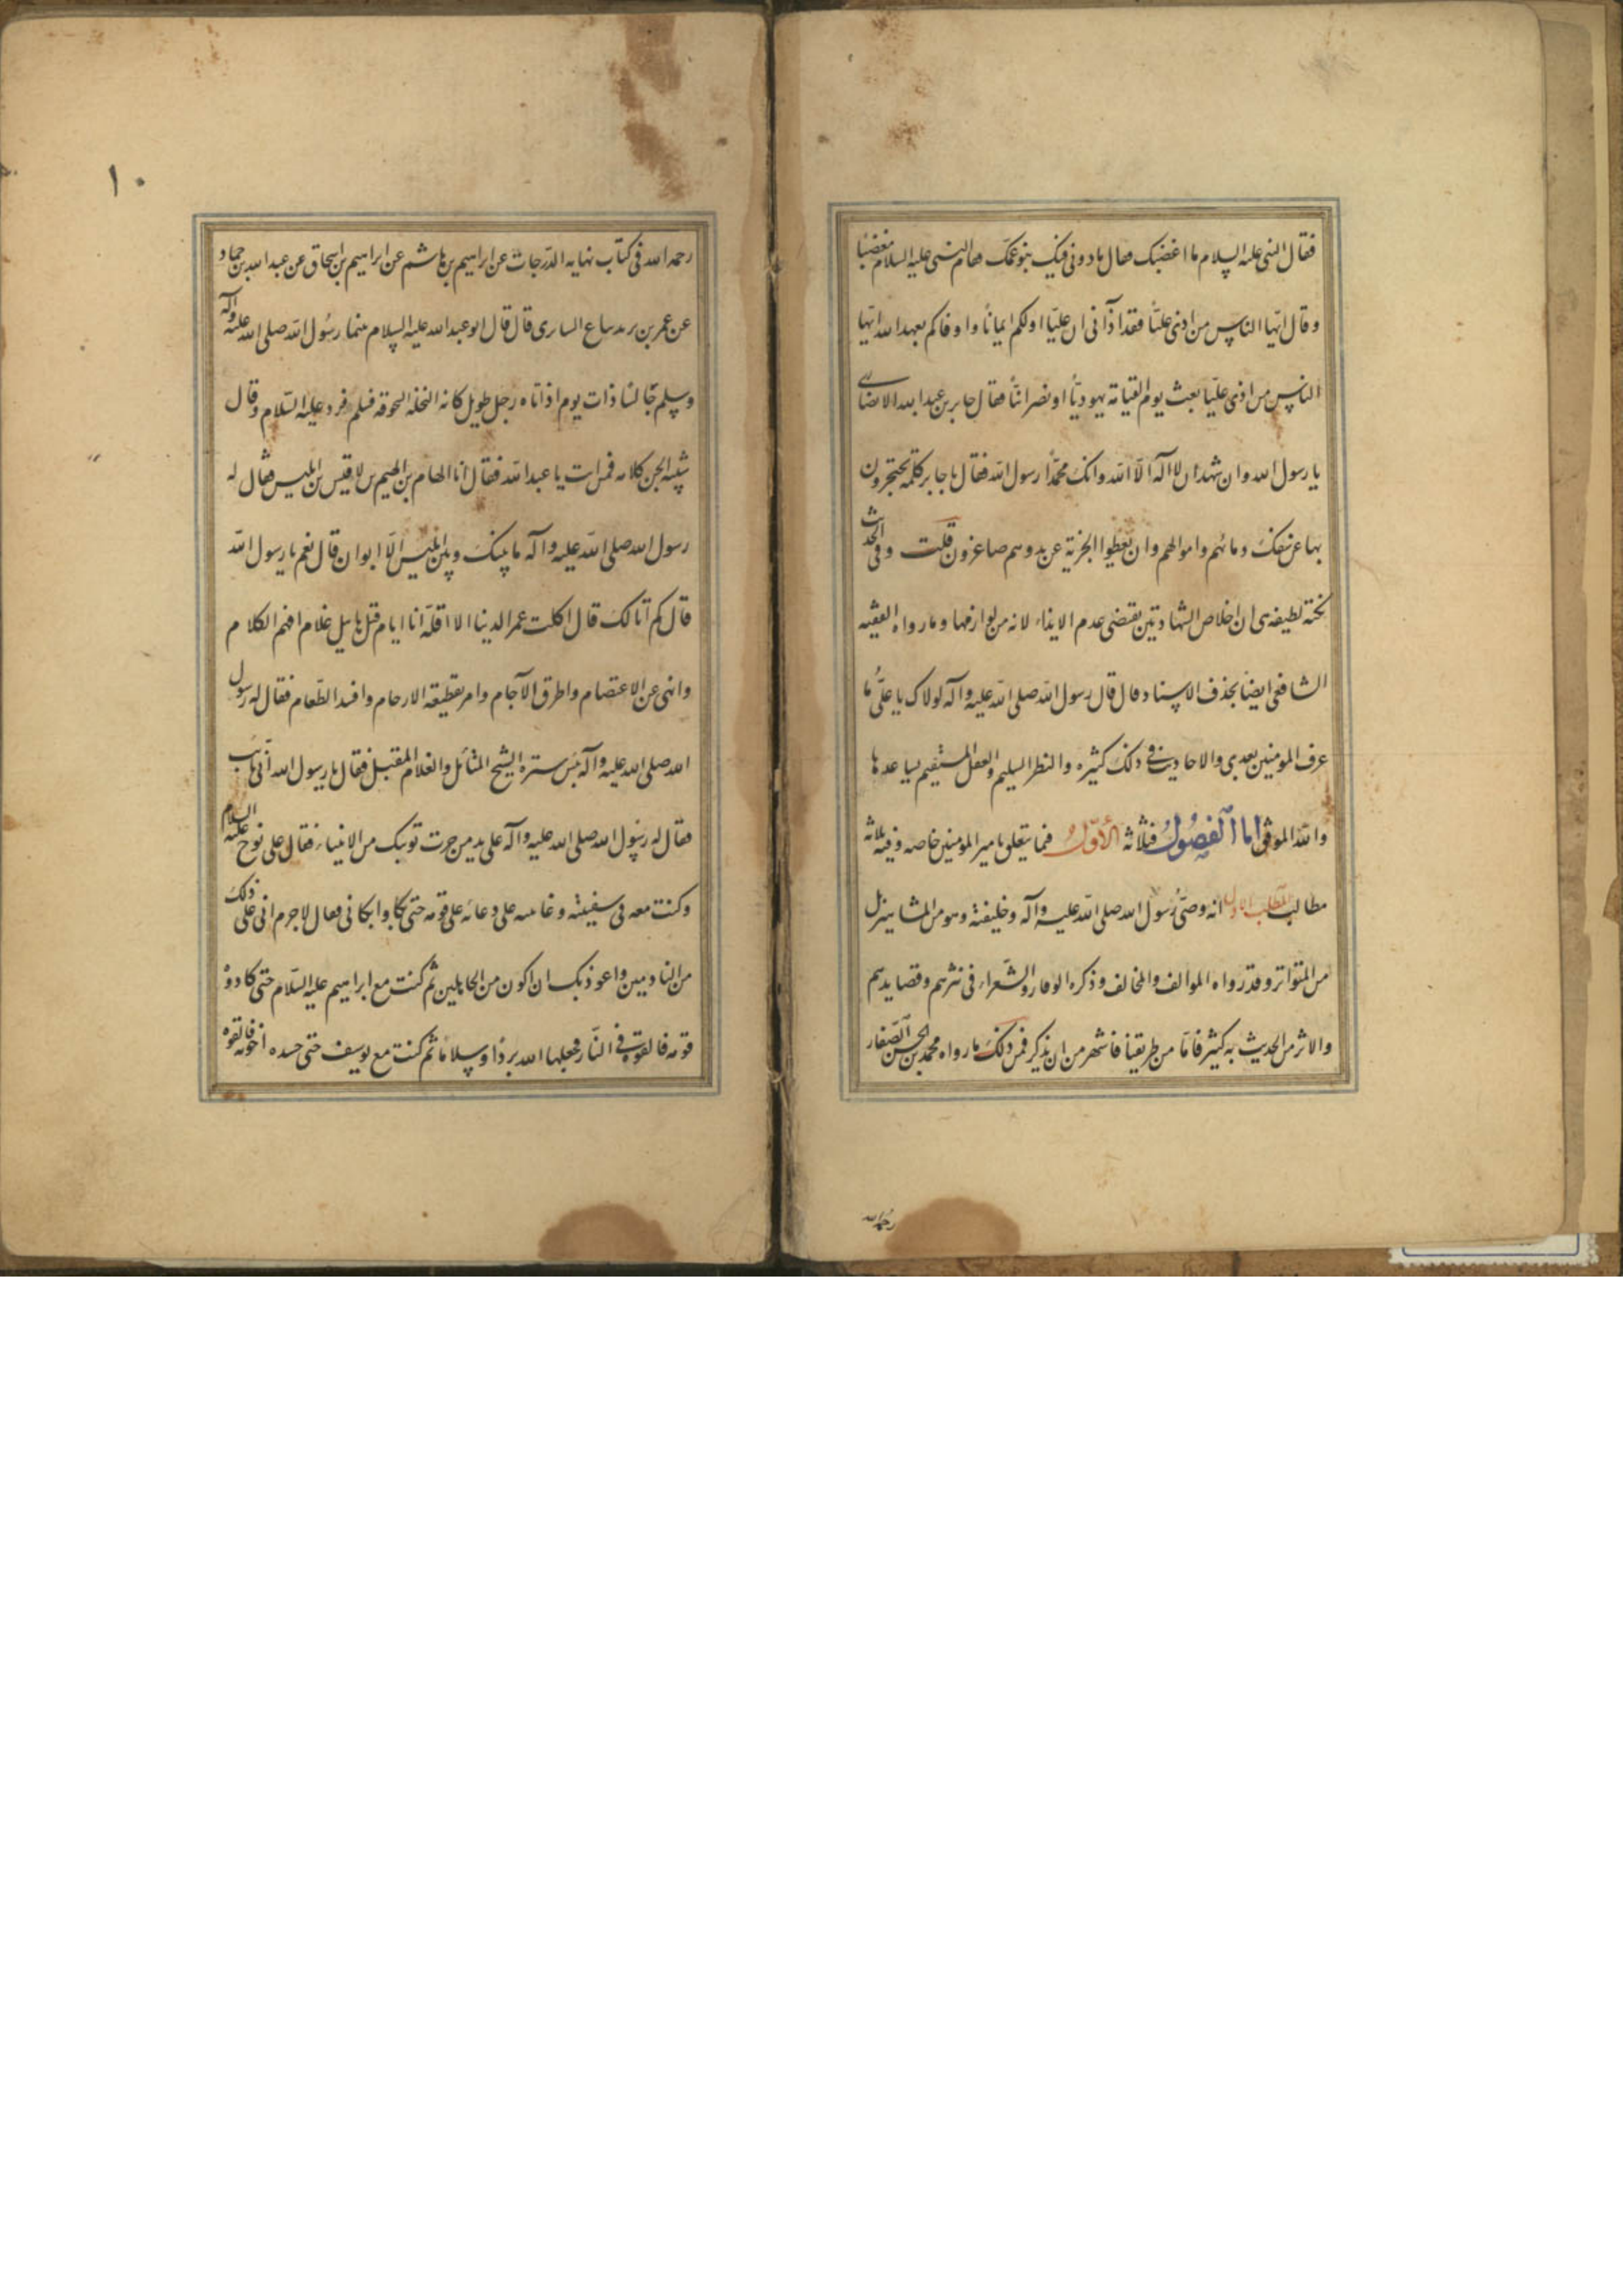 فقال النبی علیه السلام ما اغضبک فقال یا دونی فیک بنو عمک فقام النبی علیه السلام مغضبا
وقال ایها الناس من اذی علیا فقد اذانی ان علیا اولکم ایمانا واوفاکم بعهد الله ایها
الناس من اذی علیا بعث یوم القیامة یهودیا او نصرانیا فقال جابر بن عبدالله الانصاری
یا رسول الله وان شهد ان لا اله الا الله وانک محمدا رسول الله فقال یا جابر کلمة یحتجزون
بها عن سفک دمائهم واموالهم وان یعطوا الجزیة عن ید وهم صاغرون قلت وفی الحدیث
نکتة لطیفة هی ان اخلاص الشهادتین یقتضی عدم الایذاء لانه من لوازمها وما رواه الفقیه
الشافعی ایضا بحذف الاسناد قال قال رسول الله صلی الله علیه وآله لولاک یا علی ما
عرف المومنین بعدی والاحادیث فی ذلک کثیره والنظر السلیم والعقل المستقیم یساعدها
والله الموفق اما الفصول فثلاثة الاول فیما یتعلق بامیر المومنین خاصه وفیه ثلاثة
مطالب المطلب الاول انه وصی رسول الله صلی الله علیه وآله وخلیفته وهو من المشاهیر بل
من المتواتر وقد رواه الموالف والمخالف وذکره الوعار والشعراء فی نثرهم وقصایدهم
والاثر من الحدیث به کثیر فاما من طریقنا فاشهر من ان یذکر فمن ذلک ما رواه محمد بن الحسن الصفار
رحمه الله
۱۰
رحمه الله فی کتاب نهایه الدرجات عن ابراهیم بن هاشم عن ابراهیم بن اسحاق عن عبد الله بن حماد
عن عمر بن یزید بیاع السابری قال قال ابو عبد الله علیه السلام بینما رسول الله صلی الله علیه وآله
وسلم جالسا ذات یوم اذ اتاه رجل طویل کانه النخله السحوقه فسلم فرد علیه السلام وقال
شبیه الجن کلامه فمن انت یا عبد الله فقال انا الهام بن الهیم بن لاقیس بن ابلیس فقال له
رسول الله صلی الله علیه وآله ما بینک وبین ابلیس الا ابوان قال نعم یا رسول الله
قال کم اتا لک قال اکلت عمر الدنیا الا اقله انا ایام قتل هابیل غلام افهم الکلام
وانهی عن الاعتصام واطرق الآجام وامر بقطیعة الارحام وافسد الطعام فقال له رسول
الله صلی الله علیه وآله بئس سیرة الشیخ المتأمل والغلام المقبل فقال یا رسول الله انی تائب
فقال له رسول الله صلی الله علیه وآله علی ید من جرت توبتک من الانبیاء فقال علی نوح علیه السلام
وکنت معه فی سفینته وعاتبته علی دعائه علی قومه حتی بکا وابکانی فقال لا جرم انی علی ذلک
من النادمین واعوذ بک ان اکون من الجاهلین ثم کنت مع ابراهیم علیه السلام حتی کادوه
قومه فالقوه فی النار فجعلها الله بردا وسلاما ثم کنت مع یوسف حتی حسده اخوته فالقوه